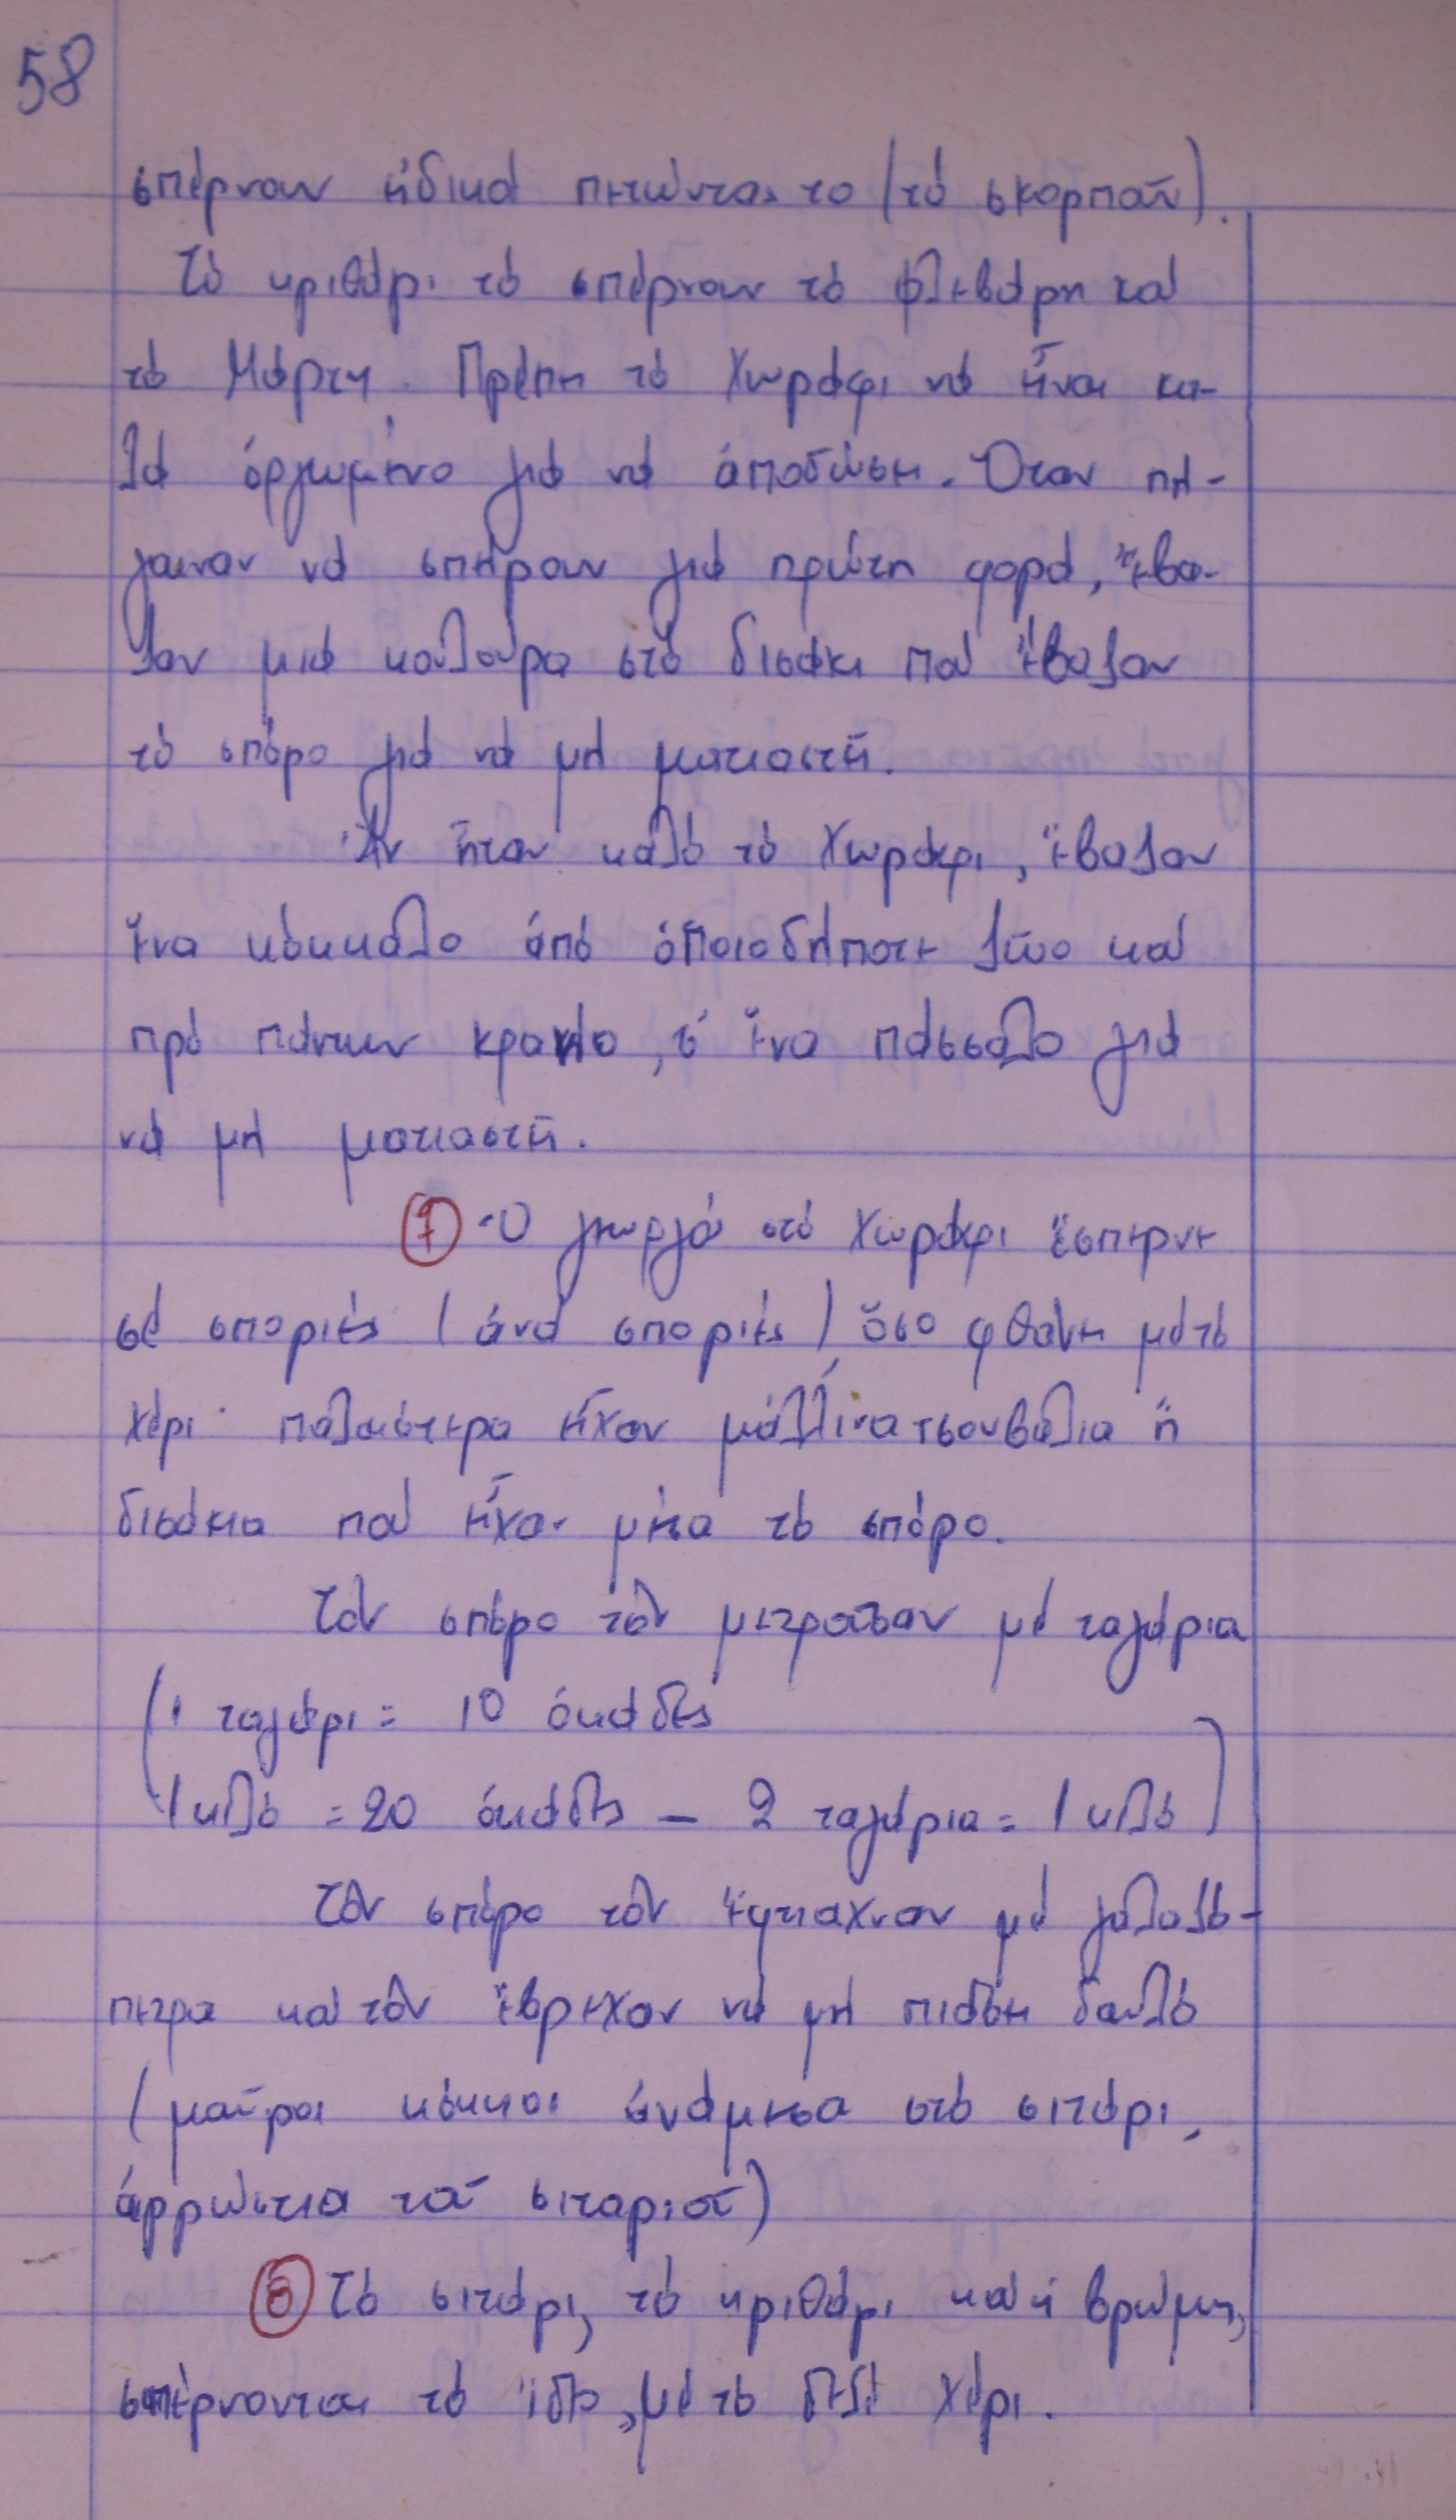 58
σπέρνουν εἰδικά πετώντας το (τό σκορπᾶν).
Τό κριθάρι τό σπέρνουν τό Φλεβάρη καί
τό Μάρτη. Πρέπει τό χωράφι νά εἶναι κα-
λά ὀργωμένο γιά νά ἀποδώσει. Ὅταν πή-
γαιναν νά σπείρουν γιά πρώτη φορά, ἔβα-
ζαν μιά κουλούρα στό δισάκι πού ἔβαζαν
τό σπόρο γιά νά μή ματιαστεῖ.
Ἄν ἦταν καλό τό χωράφι, ἔβαζαν
ἕνα κόκκαλο ἀπό ὁποιοδήποτε ζῶο καί
πρό πάντων κρανίο, σ' ἕνα πάσσαλο γιά
νά μή ματιαστεῖ.
7 Ὁ γεωργός στό χωράφι ἔσπερνε
σέ σποριές (ἀνά σποριές) ὅσο φθάνει μέ τό
χέρι· παλαιότερα εἶχαν μάλλινα τσουβάλια ἤ
δισάκια πού εἶχαν μέσα τό σπόρο.
Τόν σπόρο τόν μετροῦσαν μέ ταγάρια
(1 ταγάρι = 10 ὀκάδες
1 κιλό = 20 ὀκάδες – 2 ταγάρια = 1 κιλό)
Τόν σπόρο τόν ἔφτιαχναν μέ γαλαζό-
πετρα καί τόν ἔβρεχαν νά μή πιάσει δαυλό
(μαῦροι κόκκοι ἀνάμεσα στό σιτάρι,
ἀρρώστια τοῦ σιταριοῦ)
8 Τό σιτάρι, τό κριθάρι καί ἡ βρώμη,
σπέρνονται τό ἴδιο, μέ τό δεξί χέρι.